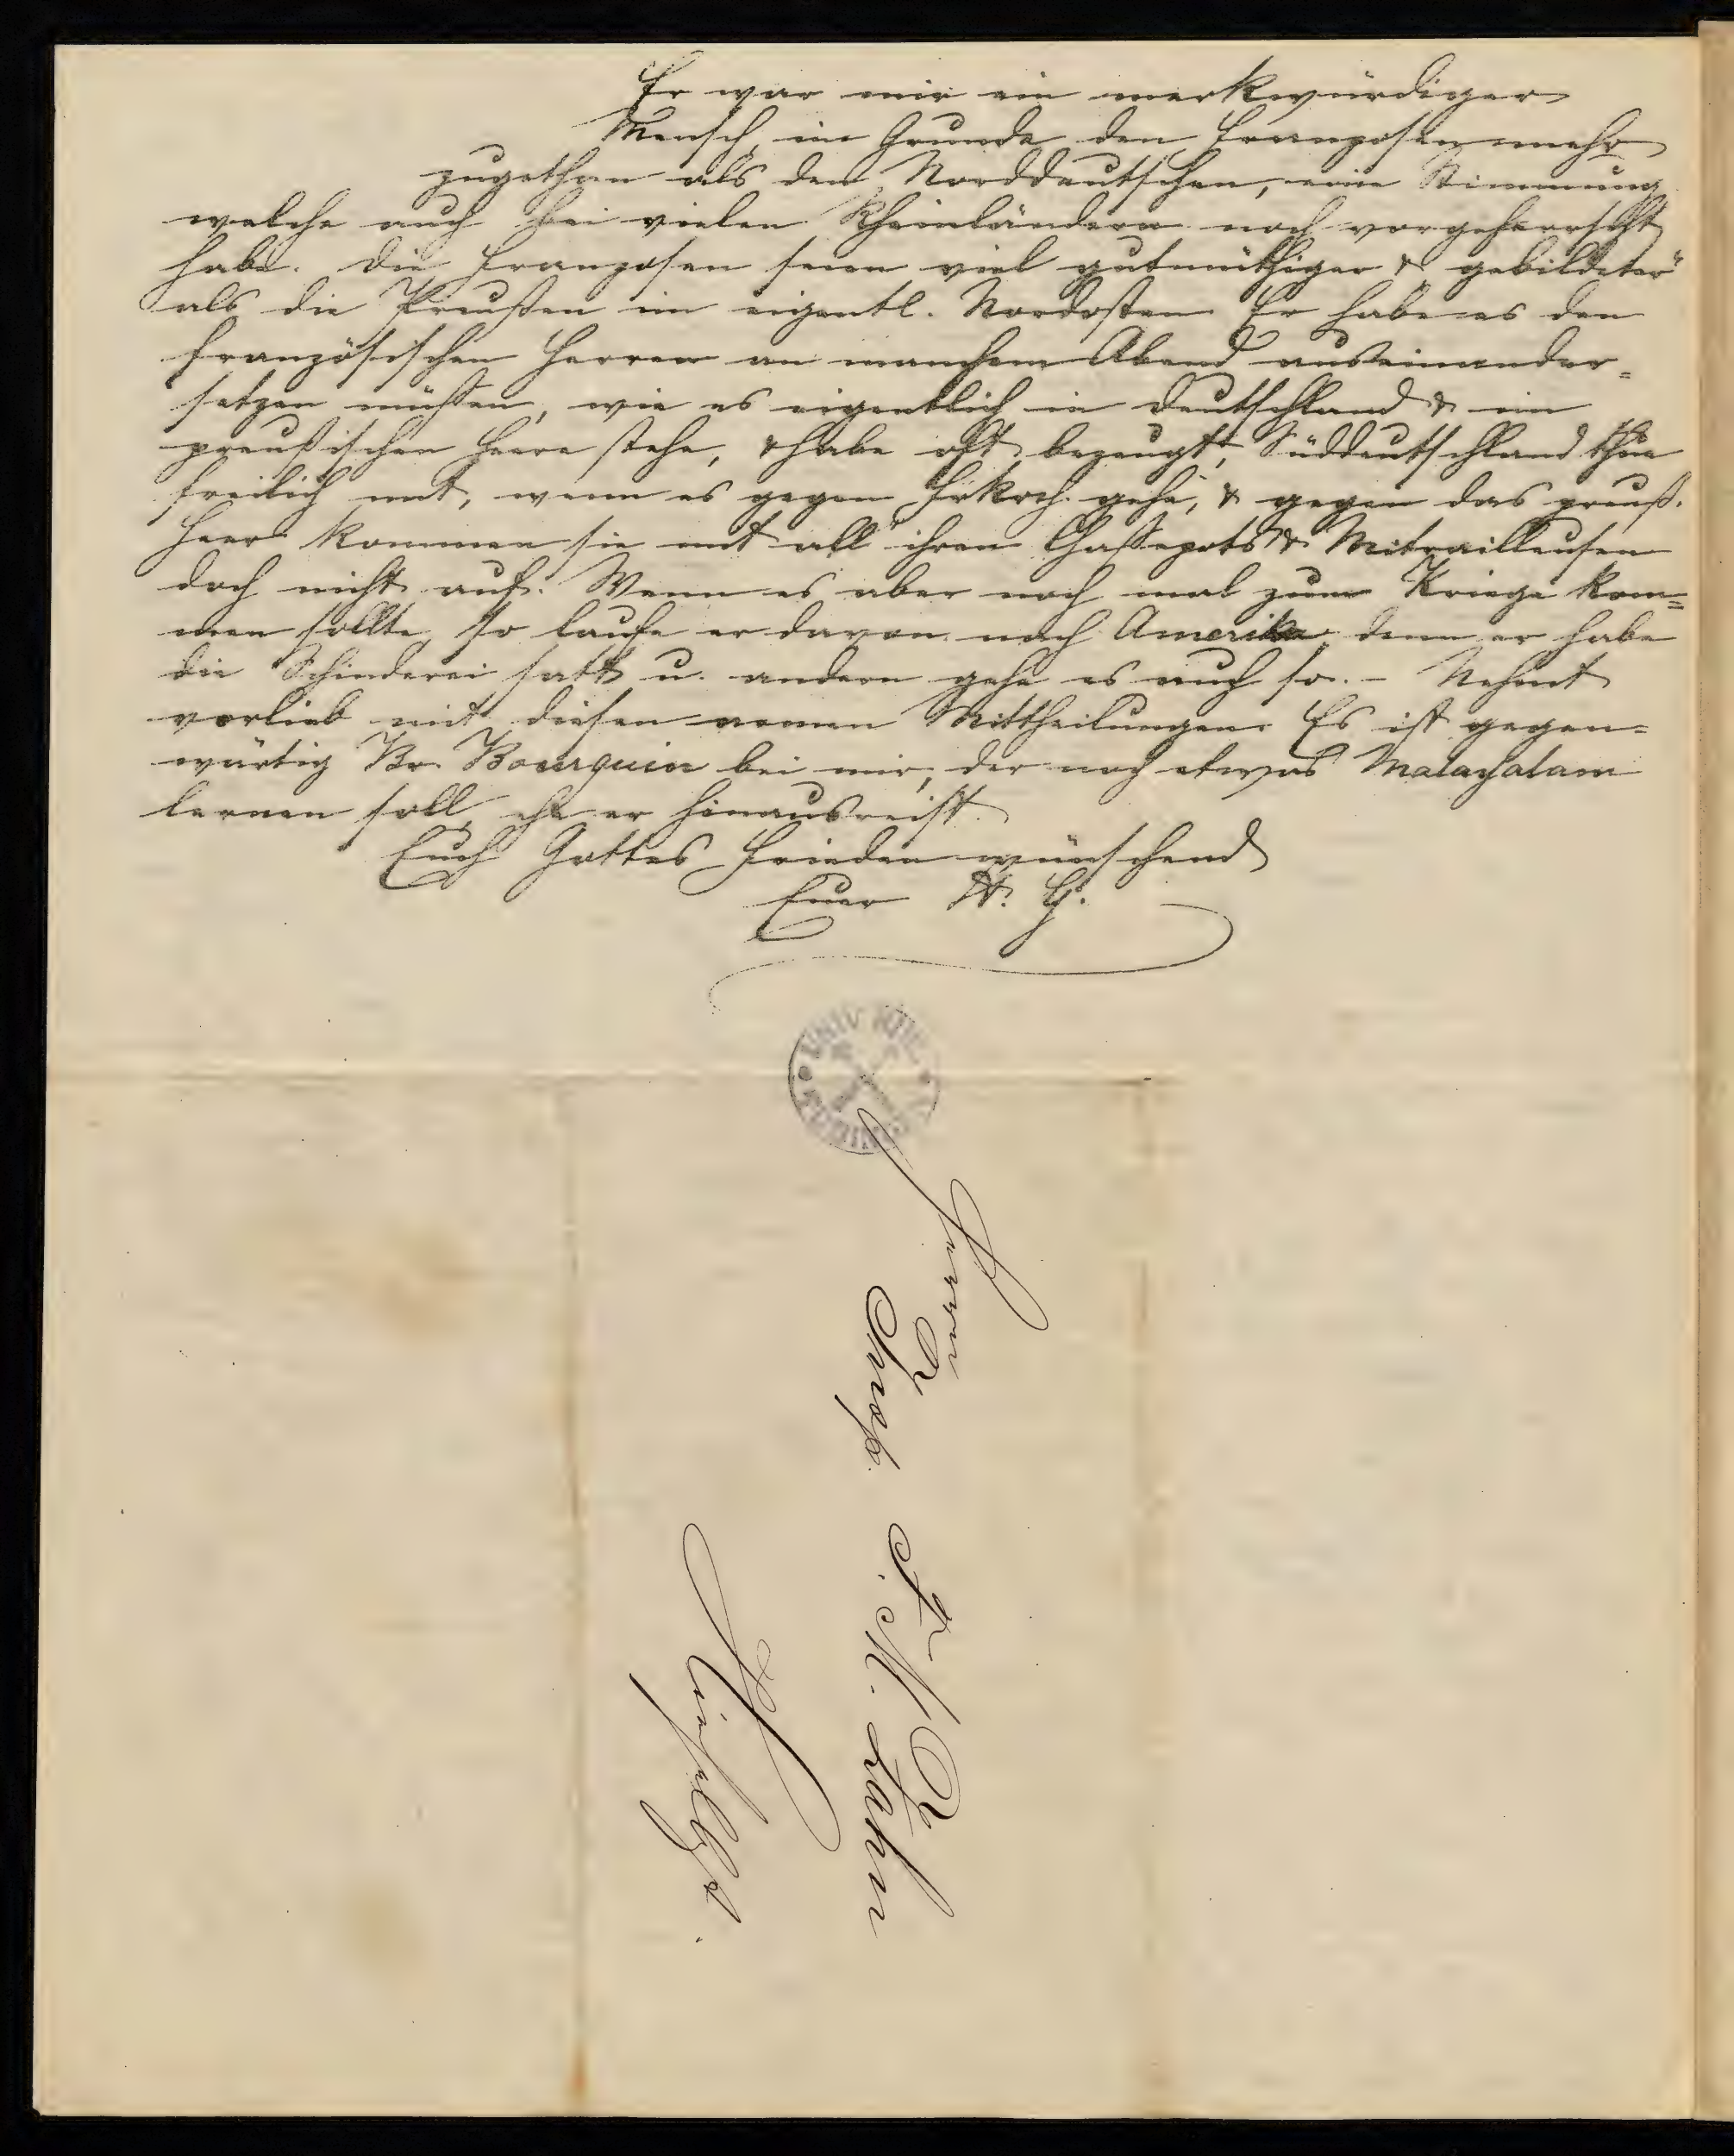 Er war mir ein merkwürdiger
Mensch, im Grunde den Franzosen mehr
zugethan als den Norddeutschen, eine Stimmung
welche auch bei vielen Rheinländern noch vorgeherrscht
habe. Die Franzosen seien viel gutmüthiger & gebildeter"
als die Preußen im eigentl. Nordosten. Er habe es den
französischen Herren an manchem Abend auseinander=
setzen müssen, wie es eigentlich in Deutschland & im
preußischen Heere stehe, & habe oft bezeugt, Süddeutschland thue
freilich mit, wenn es gegen Frkrch. gehe, & gegen das preuß.
Heer kommen sie mit all ihren Chassepots & Mitrailleusen
doch nicht auf. Wenn es aber noch mal zum Kriege kom=
men sollte, so laufe er davon nach Amerika denn er habe
die Schinderei satt u. andern gehe es auch so. - Nehmt
vorlieb mit diesen armen Mittheilungen. Es ist gegen=
wärtig Br. Bourquin bei mir, der noch etwas Malayalam
lernen soll, ehe er hinausreist.
Euch Gottes Frieden wünschend
Euer H. G.
UNIV. BIBL.
Herrn
Insp. F. M. Zahn